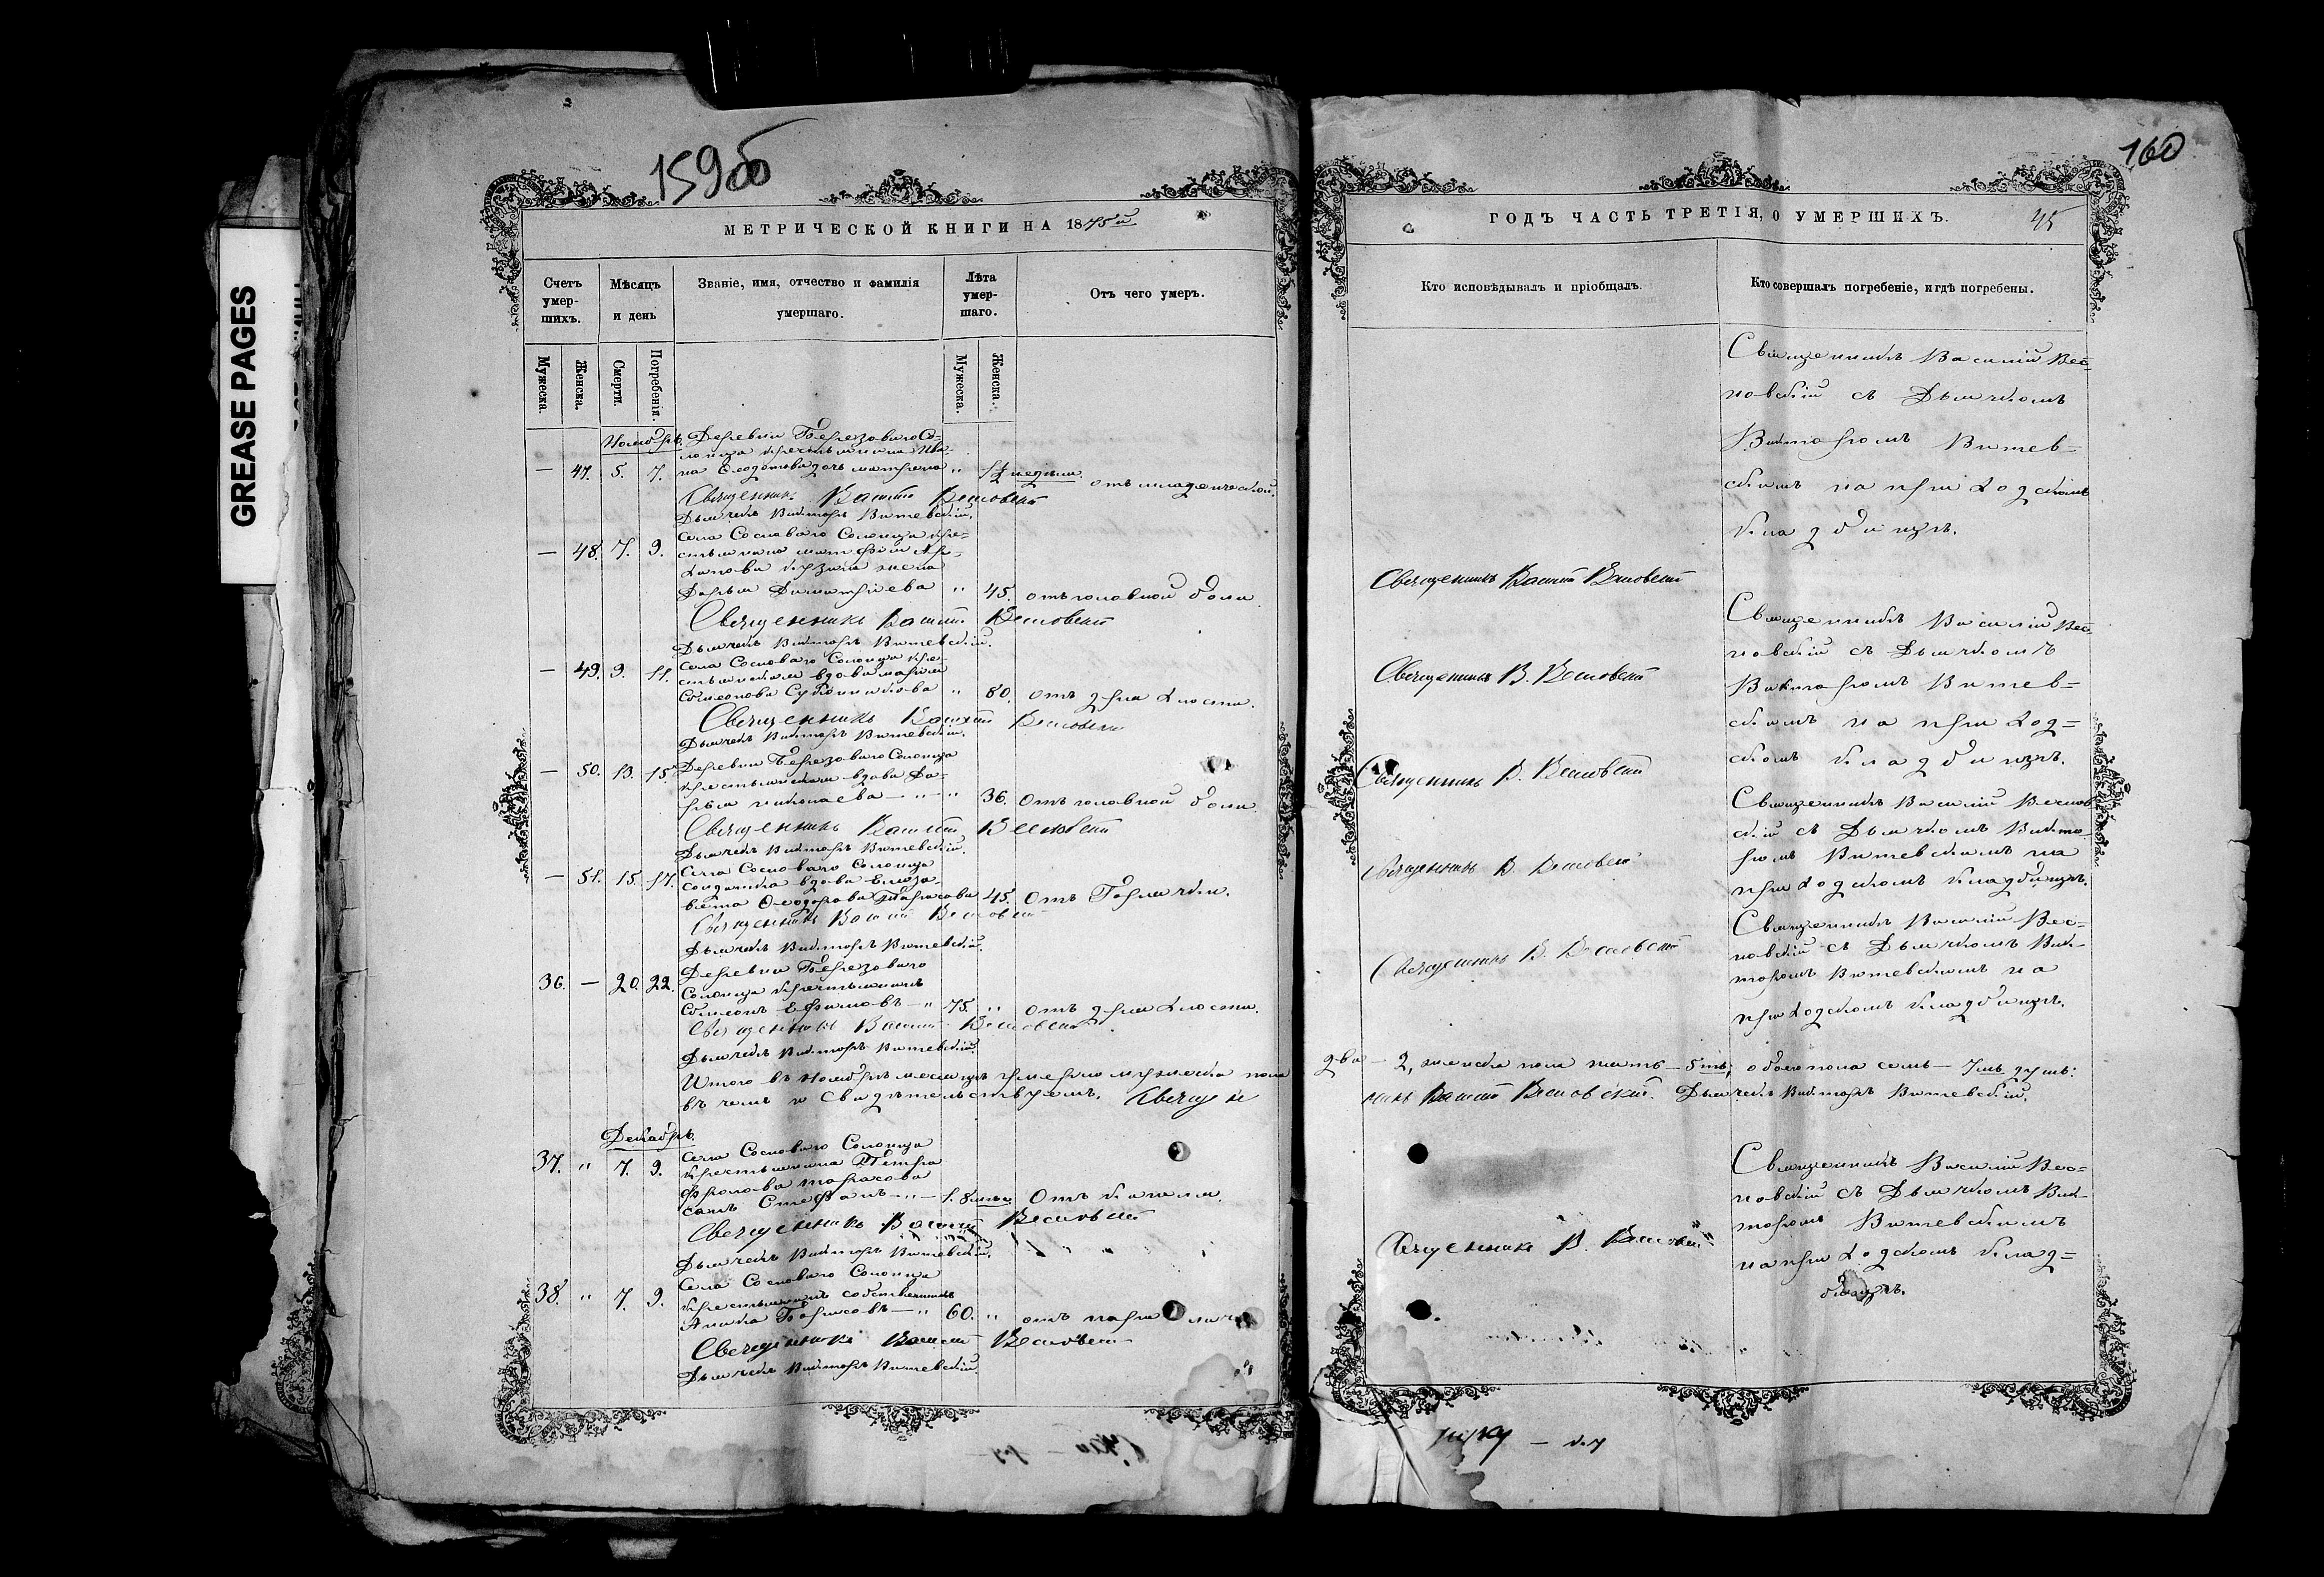 GREASE PAGES
159об
160
МЕТРИЧЕСКОЙ КНИГИ НА 1875й
Счетъ умер-шихъ.
Мѣсяцъ и день
Званіе, имя, отчество и фамилія умершаго.
Лѣта умер-шаго.
Отъ чего умеръ.
Мужеска.
Женска.
Смерти.
Погребенія.
Мужеска.
Женска.
Ноябрь.
Деревни Березоваго Со-
лонца крестьянина Ива-
— 47. 5. 7. на Ѳеодотова дочь матрона " 1½ недѣли. отъ младенческой.
Священникъ Василій Весновскій
Дьячекъ Викторъ Витевскій.
Села Сосноваго Солонца кре-
— 48. 7. 9. стьянина
жена
Дарья Димитріева " 45. отъ головной боли.
Священникъ Василій Весновскій
Дьячекъ Викторъ Витевскій.
Села Сосноваго Солонца кре-
— 49. 9. 11. стьянская вдова марія
Симеонова " 80. отъ дряхлости.
Священникъ Василій Весновскій
Дьячекъ Викторъ Витевскій.
— 50. 13. 15. Деревни Березоваго Солонца
крестьянская вдова Да-
рья николаева — " — " 36. отъ головной боли.
Священникъ Василій Весновскій
Дьячекъ Викторъ Витевскій.
Села Сосноваго Солонца
— 51. 15. 17. солдатка вдова Елиза-
вета Ѳеодорова Тарасова 45. отъ Горячки.
Священникъ Василій Весновскій
Дьячекъ Викторъ Витевскій.
Деревни Березоваго
36. — 20. 22. Солонца крестьянинъ
Симеонъ Ефимовъ — " 75. " отъ дряхлости.
Священникъ Василій Весновскій
Дьячекъ Викторъ Витевскій.
Итого въ Ноябрѣ месяцѣ умерло мужеска пола
въ чемъ и Свидѣтельствуемъ. Священ
Декабрь.
Села Сосноваго Солонца
37. " 7. 9. крестьянина Петра
Фролова тарасова
сынъ Стефанъ — " — 1. 8. мѣс. Отъ кашля.
Священникъ Василій Весновскій
Дьячекъ Викторъ Витевскій.
Села Сосноваго Солонца
38. " 7. 9. крестьянинъ собственникъ
Аника Борисовъ — " 60. " отъ
Священникъ Василій Весновскій
Дьячекъ Викторъ Витевскій
ГОДЪ ЧАСТЬ ТРЕТІЯ, О УМЕРШИХЪ.
45
Кто исповѣдывалъ и пріобщалъ.
Кто совершалъ погребеніе, и гдѣ погребены.
Священникъ Василій Вес-
новскій съ Дьячкомъ
Викторомъ Витев-
скимъ на приходскомъ
кладбищѣ.
Священникъ Василій Весновскій
Священникъ Василій Вес-
новскій съ Дьячкомъ
Викторомъ Витев-
скимъ на приход-
скомъ кладбищѣ.
Священникъ В. Весновскій
Священникъ В. Весновскій
Священникъ Василій Веснов-
скій съ Дьячкомъ Викто-
ромъ Витевскимъ на
приходскомъ кладбищѣ.
Священникъ В. Весновскій
Священникъ Василій Вес-
новскій съ Дьячкомъ Вик-
торомъ Витевскимъ на
приходскомъ кладбищѣ.
Священникъ В. Весновскій
два — 2, женска пола пять — 5ть, обоего пола семь — 7мь душъ:
никъ Василій Весновскій. Дьячекъ Викторъ Витевскій.
Священникъ Василій Вес-
новскій съ Дьячкомъ Вик-
торомъ Витевскимъ
на приходскомъ клад-
бищѣ.
Священникъ В. Весновскій